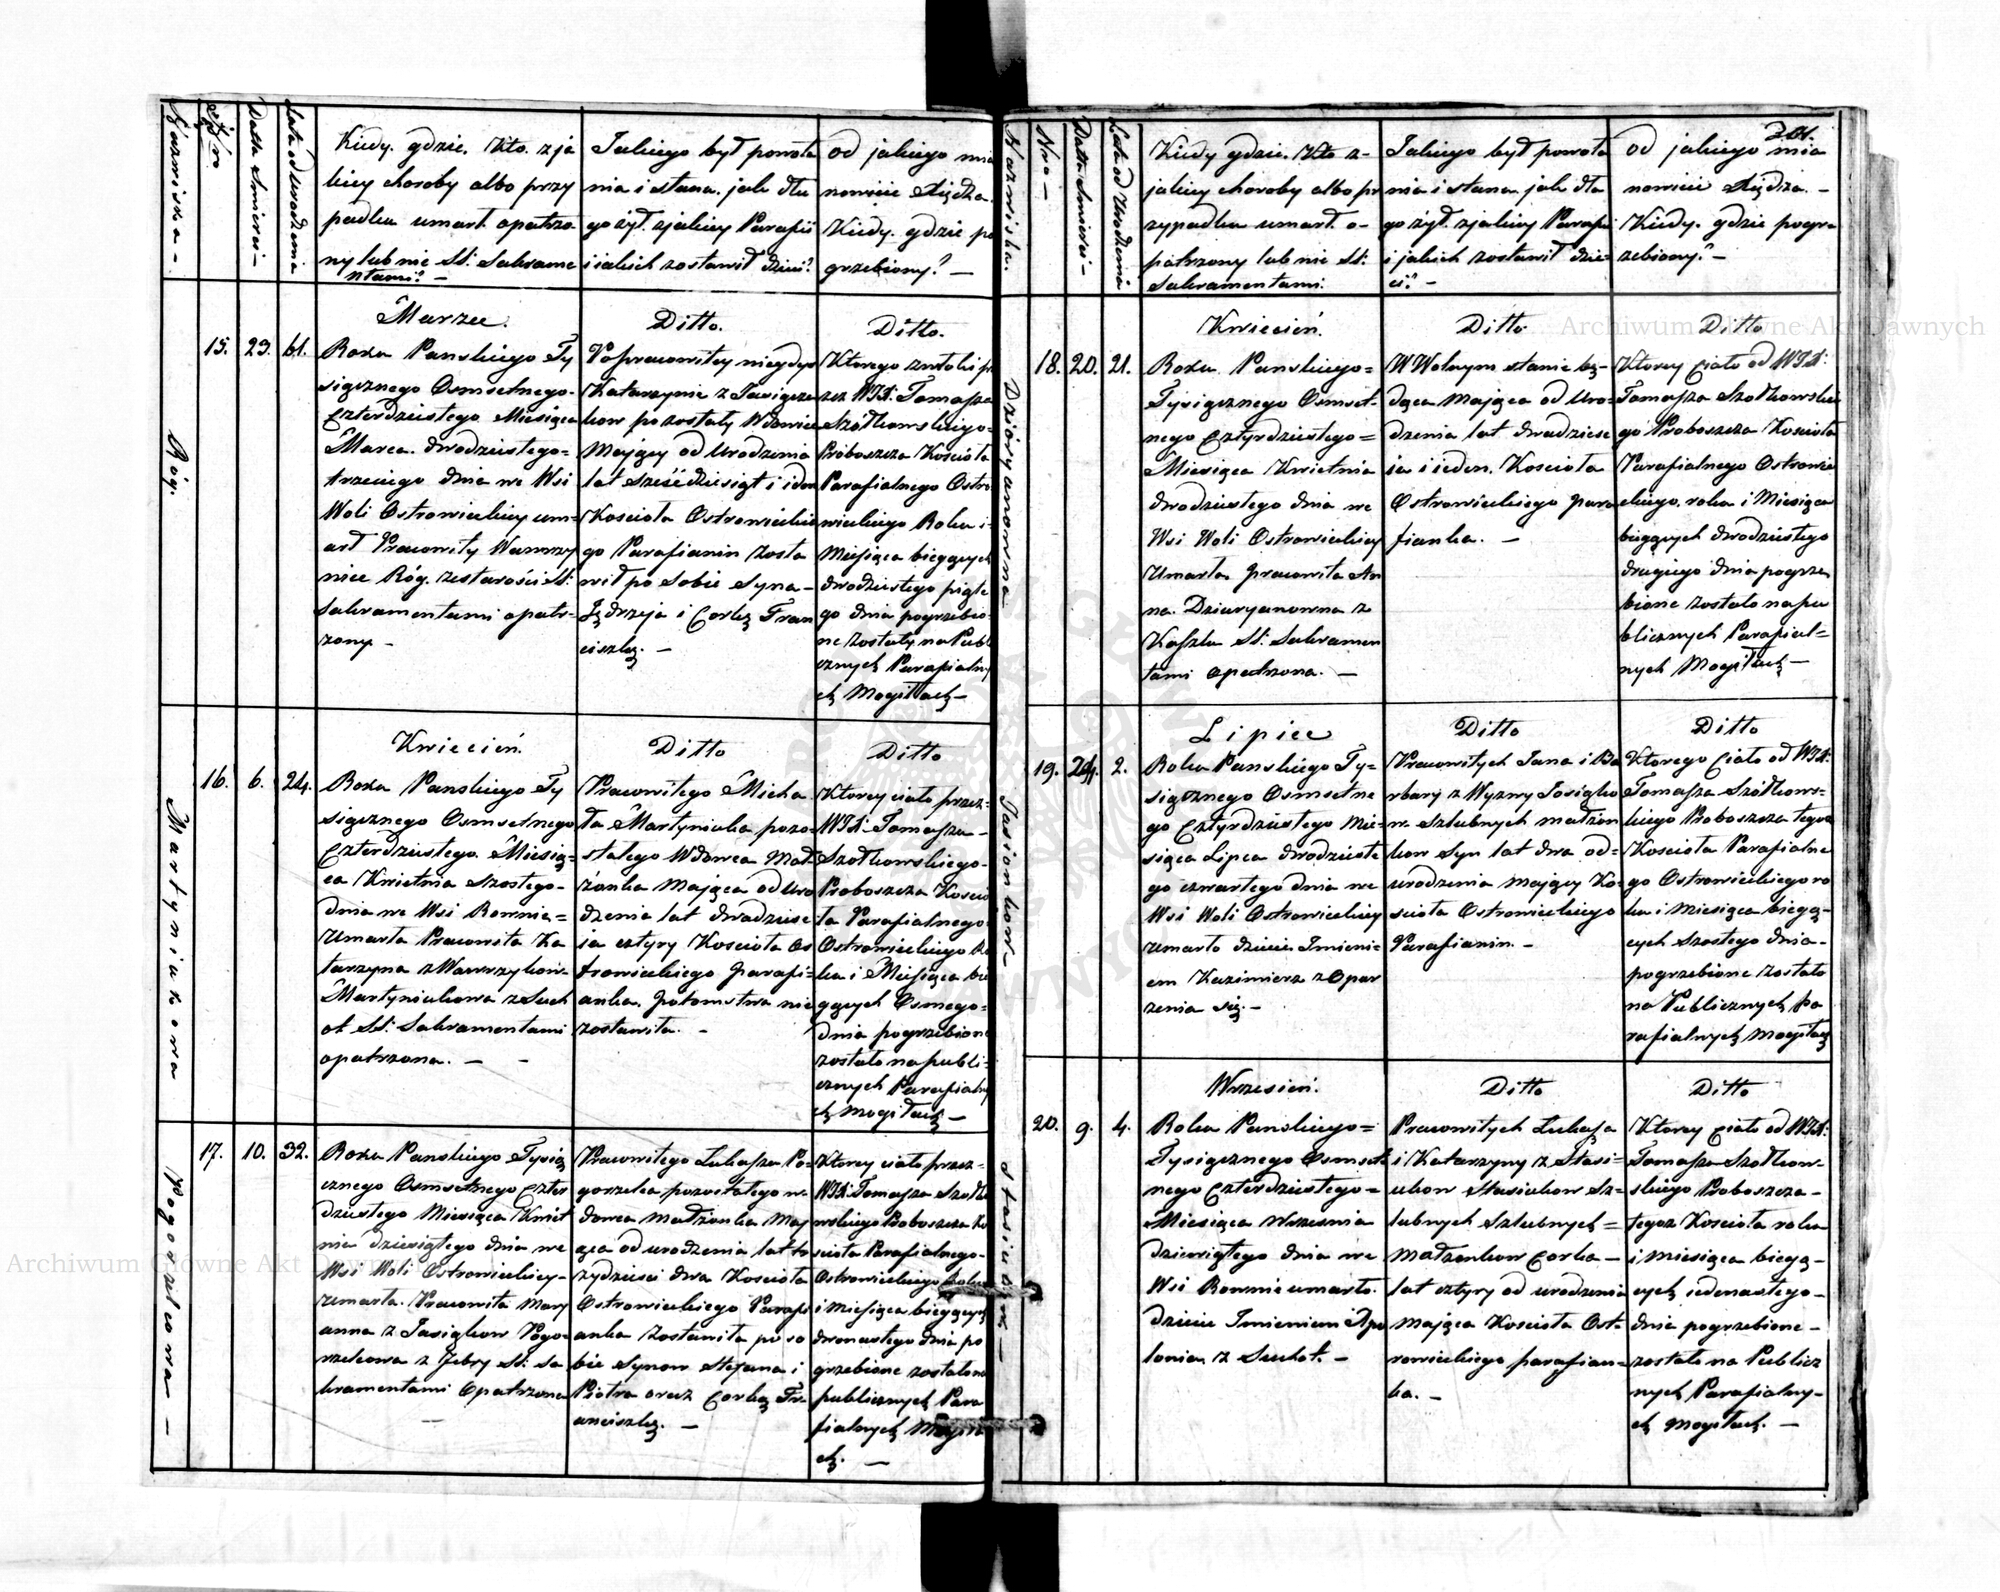 Nazwiska -
Nro
Datta Smierci -
Lata od Urodzenia
Kiedy, gdzie, Kto, z ja
kiey choroby albo przy
padku umarł, opatrzo
ny lub nie SS: Sakrame
ntami? -
Jakiego był powoła
nia i stanu, jak dłu
go żył, z jakiey Parafii
i iakich zostawił dzieci?
od jakiego mia
nowicie Xiędza.
Kiedy, gdzie po
grzebiony? -
Róg.
15.
23.
61.
Marzec.
Roku Panskiego Ty
siącznego Osmsetnego
Czterdziestego Miesiąca
Marca, dwodziestego=
trzeciego dnia we Wsi
Woli Ostrowieckiey um=
arł Pracowity Wawrzy
niec Róg, ze starości SS:
Sakramentami opatr-
zony -
Ditto.
Po pracowitey niegdys
Katarzynie z Jasiącze
kow pozostały Wdowiec
Mający od Urodzenia
lat sześćdziesiąt i ieden
Koscioła Ostrowieckie
go Parafianin zosta
wił po Sobie Syna -
Jędrzeja i Corkę Fran
ciszkę. -
Ditto.
Ktorego zwłoki pr
zez WJX: Tomasza
Szółkowskiego=
Proboszcza Kościoła
Parafialnego Ostro
wieckiego Roku i
Miesiąca bieżących
dwodziestego piąte
go dnia pogrzebio
ne zostały na Publi
cznych Parafialny
ch Mogiłach -
Martyniukowa
16.
6.
24.
Kwiecień.
Roku Panskiego Ty
siącznego Osmsetnego
Czterdziestego Miesią=
ca Kwietnia Szostego-
dnia we Wsi Rownia=
Umarła Pracowita Ka
tarzyna z Wawrzykow
Martyniukowa z Such
ot SS: Sakramentami
opatrzona. - -
Ditto
Pracowitego Micha
ła Martyniuka pozo-
stałego Wdowca Mał
żonka Mająca od uro
dzenia lat dwadzieśc
ia cztyry Koscioła Os
trowieckiego parafi=
anka, potomstwa nie
zostawiła. -
Ditto
Ktorey ciało przez-
WJX: Tomasza-
Szołkowskiego-
Proboszcza Koscio
ła Parafialnego
Ostrowieckiego Ro
ku i Miesiąca bie
żących Osmego=
dnia pogrzebione
zostało na publi=
cznych Parafialny
ch Mogiłach -
Pogorzelcowa -
17.
10.
32.
Roku Panskiego Tysią
cznego Osmsetnego Czter
dziestego Miesiąca Kwiet
nia dziesiątego dnia we
Wsi Woli Ostrowieckiey-
Umarła. Pracowita Mary
anna z Jasiąkow Pogo-
rzelcowa z Febry SS: Sa
kramentami Opatrzona
-
Pracowitego Łukasza Po-
gorzelca pozostałego w-
dowca Małżonka Maj
ąca od urodzenia lat tr
zydzieści dwa Kościoła
Ostrowieckiego Parafi
anka Zostawiła po so
bie Synow Stefana i
Piotra oraz Corkę Fr-
anciszkę. -
Ktorey ciało przez-
WJX: Tomasza Szołko
wskiego Proboszcza Ko
scioła Parafialnego-
Ostrowieckiego Roku
i Miesiąca bieżących
dwonastego dnia po
grzebione zostało na
publicznych Para
fialnych Mogiła
ch. -
201.
Nazwiska.
Nro -
Datta Smierci -
Lata od Urodzenia
Kiedy gdzie, Kto z-
jakiey choroby albo pr
zypadku umarł, o-
patrzony lub nie SS:
Sakramentami:
Jakiego był powoła
nia i stanu, jak dłu
go żył, z jakiey Parafii
i jakich zostawił dzie=
ci? -
od jakiego mia
nowicie Xiędza. -
Kiedy, gdzie pogrze
zebiony? -
Dziuryanowna
18.
20.
21.
Kwiecień.
Roku Panskiego=
Tysiącznego Osmset-
nego Cztyrdziestego=
Miesiąca Kwietnia
dwodziestego dnia we
Wsi Woli Ostrowieckiey
Umarła pracowita An
na Dziuryanowna z
Kaszlu SS: Sakramen
tami opatrzona. -
Ditto
W Wolnym stanie bę-
dąca Mająca od Uro-
dzenia lat dwadzieśc
ia i ieden, Koscioła
Ostrowieckiego para
fianka. -
Ditto
Ktorey Ciało od WJX:
Tomasza Szołkowskie
go Proboszcza Koscioła
Parafialnego Ostrowie
ckiego, roku i Miesiąca
bieżących dwodziestego
drugiego dnia pogrze
bione zostało na pu
blicznych Parafial=
nych Mogiłach -
Jasionkow -
19.
24.
2.
Lipiec
Roku Panskiego Ty-
siącznego Osmsetne
go Cztyrdziestego Mie=
siąca Lipca dwodzieste
go czwartego dnia we
Wsi Woli Ostrowieckiey
Umarło dziecie Imieni=
em Kazimierz z Opar
zenia się. -
Ditto
Pracowitych Jana i Ba
rbary z Wyzwy Josiąko
w Szlubnych małżon
kow Syn lat dwa od=
urodzenia mający Ko-
scioła Ostrowieckiego
Parafianin. -
Ditto
Ktorego Ciało od WJX:
Tomasza Szółkows=
kiego Proboszcza tegoż
Koscioła Parafialne
go Ostrowieckiego ro
ku i Miesiąca bieżą-
cych Szostego dnia-
pogrzebione zostało
na Publicznych Pa
rafialnych Mogiłach
Stasiukow -
20.
9.
4.
Wrzesień.
Roku Panskiego=
Tysiącznego Osmset
nego Czterdziestego=
Miesiąca Wrzesnia
dziewiątego dnia we
Wsi Rownie umarło.
dziecie Imieniem Apo
lonia z Suchot. -
Ditto
Pracowitych Łukasza
i Katarzyny z Stasi-
ukow Stasiukow Sz=
lubnych Szlubnych=
Małżonkow Corka-
lat cztyry od urodzenia
Mająca Koscioła Ost-
rowieckiego parafian=
ka. -
Ditto
Ktorey Ciało od WJX:
Tomasza Szołkow-
skiego Proboszcza-
tegoż Koscioła roku
i miesiąca bieżą-
cych iedenastego-
dnia pogrzebione-
zostało na Publicz
nych Parafialny-
ch Mogiłach. -
Archiwum Główne Akt Dawnych
Archiwum Główne Akt Dawnych